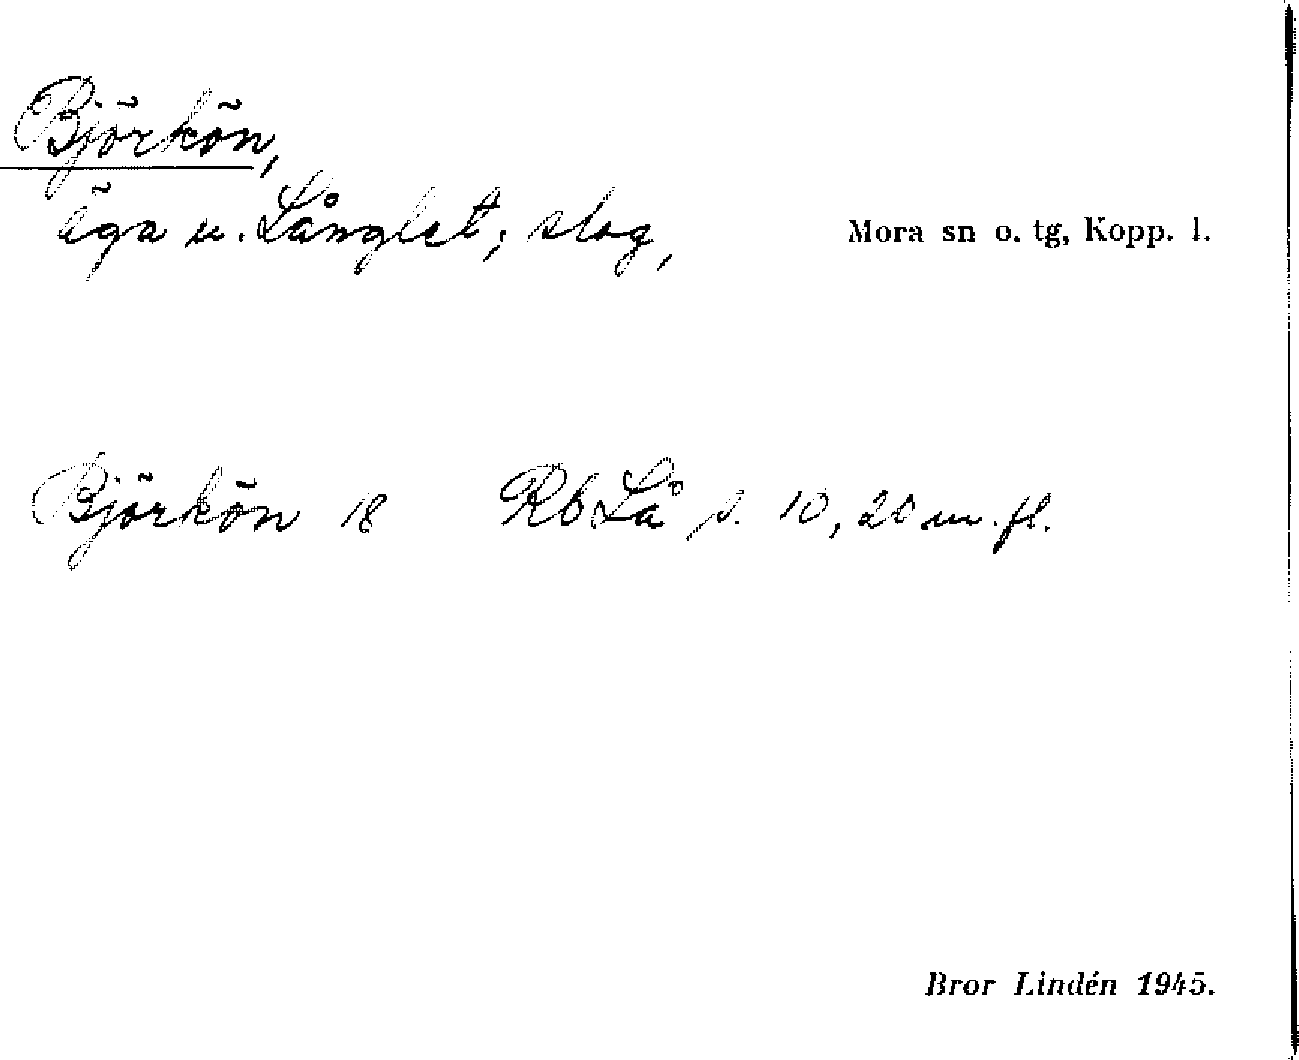 Björkön,
äga u. Långlet; slog,
Mora sn o. tg, Kopp. l.
Björkön 18 Rb Lå s. 10, 20 m. fl.
Bror Lindén 1945.